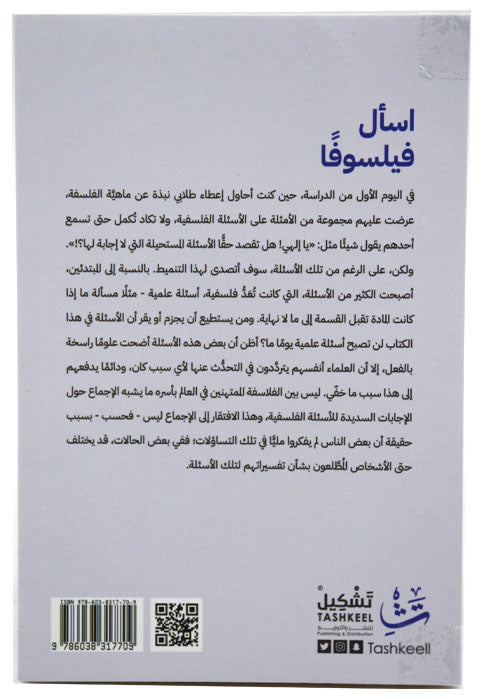 اسأل
فيلسوفًا
في اليوم الأول من الدراسة، حين كنت أحاول إعطاء طلابي نبذة عن ماهيَّة الفلسفة،
عرضت عليهم مجموعة من الأمثلة على الأسئلة الفلسفية، ولا تكاد تُكمل حتى تسمع
أحدهم يقول شيئًا مثل: «يا إلهي! هل تقصد حقًّا الأسئلة المستحيلة التي لا إجابة لها؟!».
ولكن، على الرغم من تلك الأسئلة، سوف أتصدى لهذا التنميط. بالنسبة إلى المبتدئين،
أصبحت الكثير من الأسئلة، التي كانت تُعَدُّ فلسفية، أسئلة علمية - مثلًا مسألة ما إذا
كانت المادة تقبل القسمة إلى ما لا نهاية. ومن يستطيع أن يجزم أو يقر أن الأسئلة في هذا
الكتاب لن تصبح أسئلة علمية يومًا ما؟ أظن أن بعض هذه الأسئلة أضحت علومًا راسخة
بالفعل، إلا أن العلماء أنفسهم يتردَّدون في التحدُّث عنها لأي سبب كان، ودائمًا يدفعهم
إلى هذا سبب ما خفّي. ليس بين الفلاسفة الممتهنين في العالم بأسره ما يشبه الإجماع حول
الإجابات السديدة للأسئلة الفلسفية، وهذا الافتقار إلى الإجماع ليس - فحسب - بسبب
حقيقة أن بعض الناس لم يفكروا مليًّا في تلك التساؤلات؛ ففي بعض الحالات، قد يختلف
حتى الأشخاص المُطَّلعون بشأن تفسيراتهم لتلك الأسئلة.
ISBN 978-603-8317-70-9
9 786038 317709
تَشْكِيل
TASHKEEL
للنشر والتوزيع
Publishing & Distribution
Tashkeell